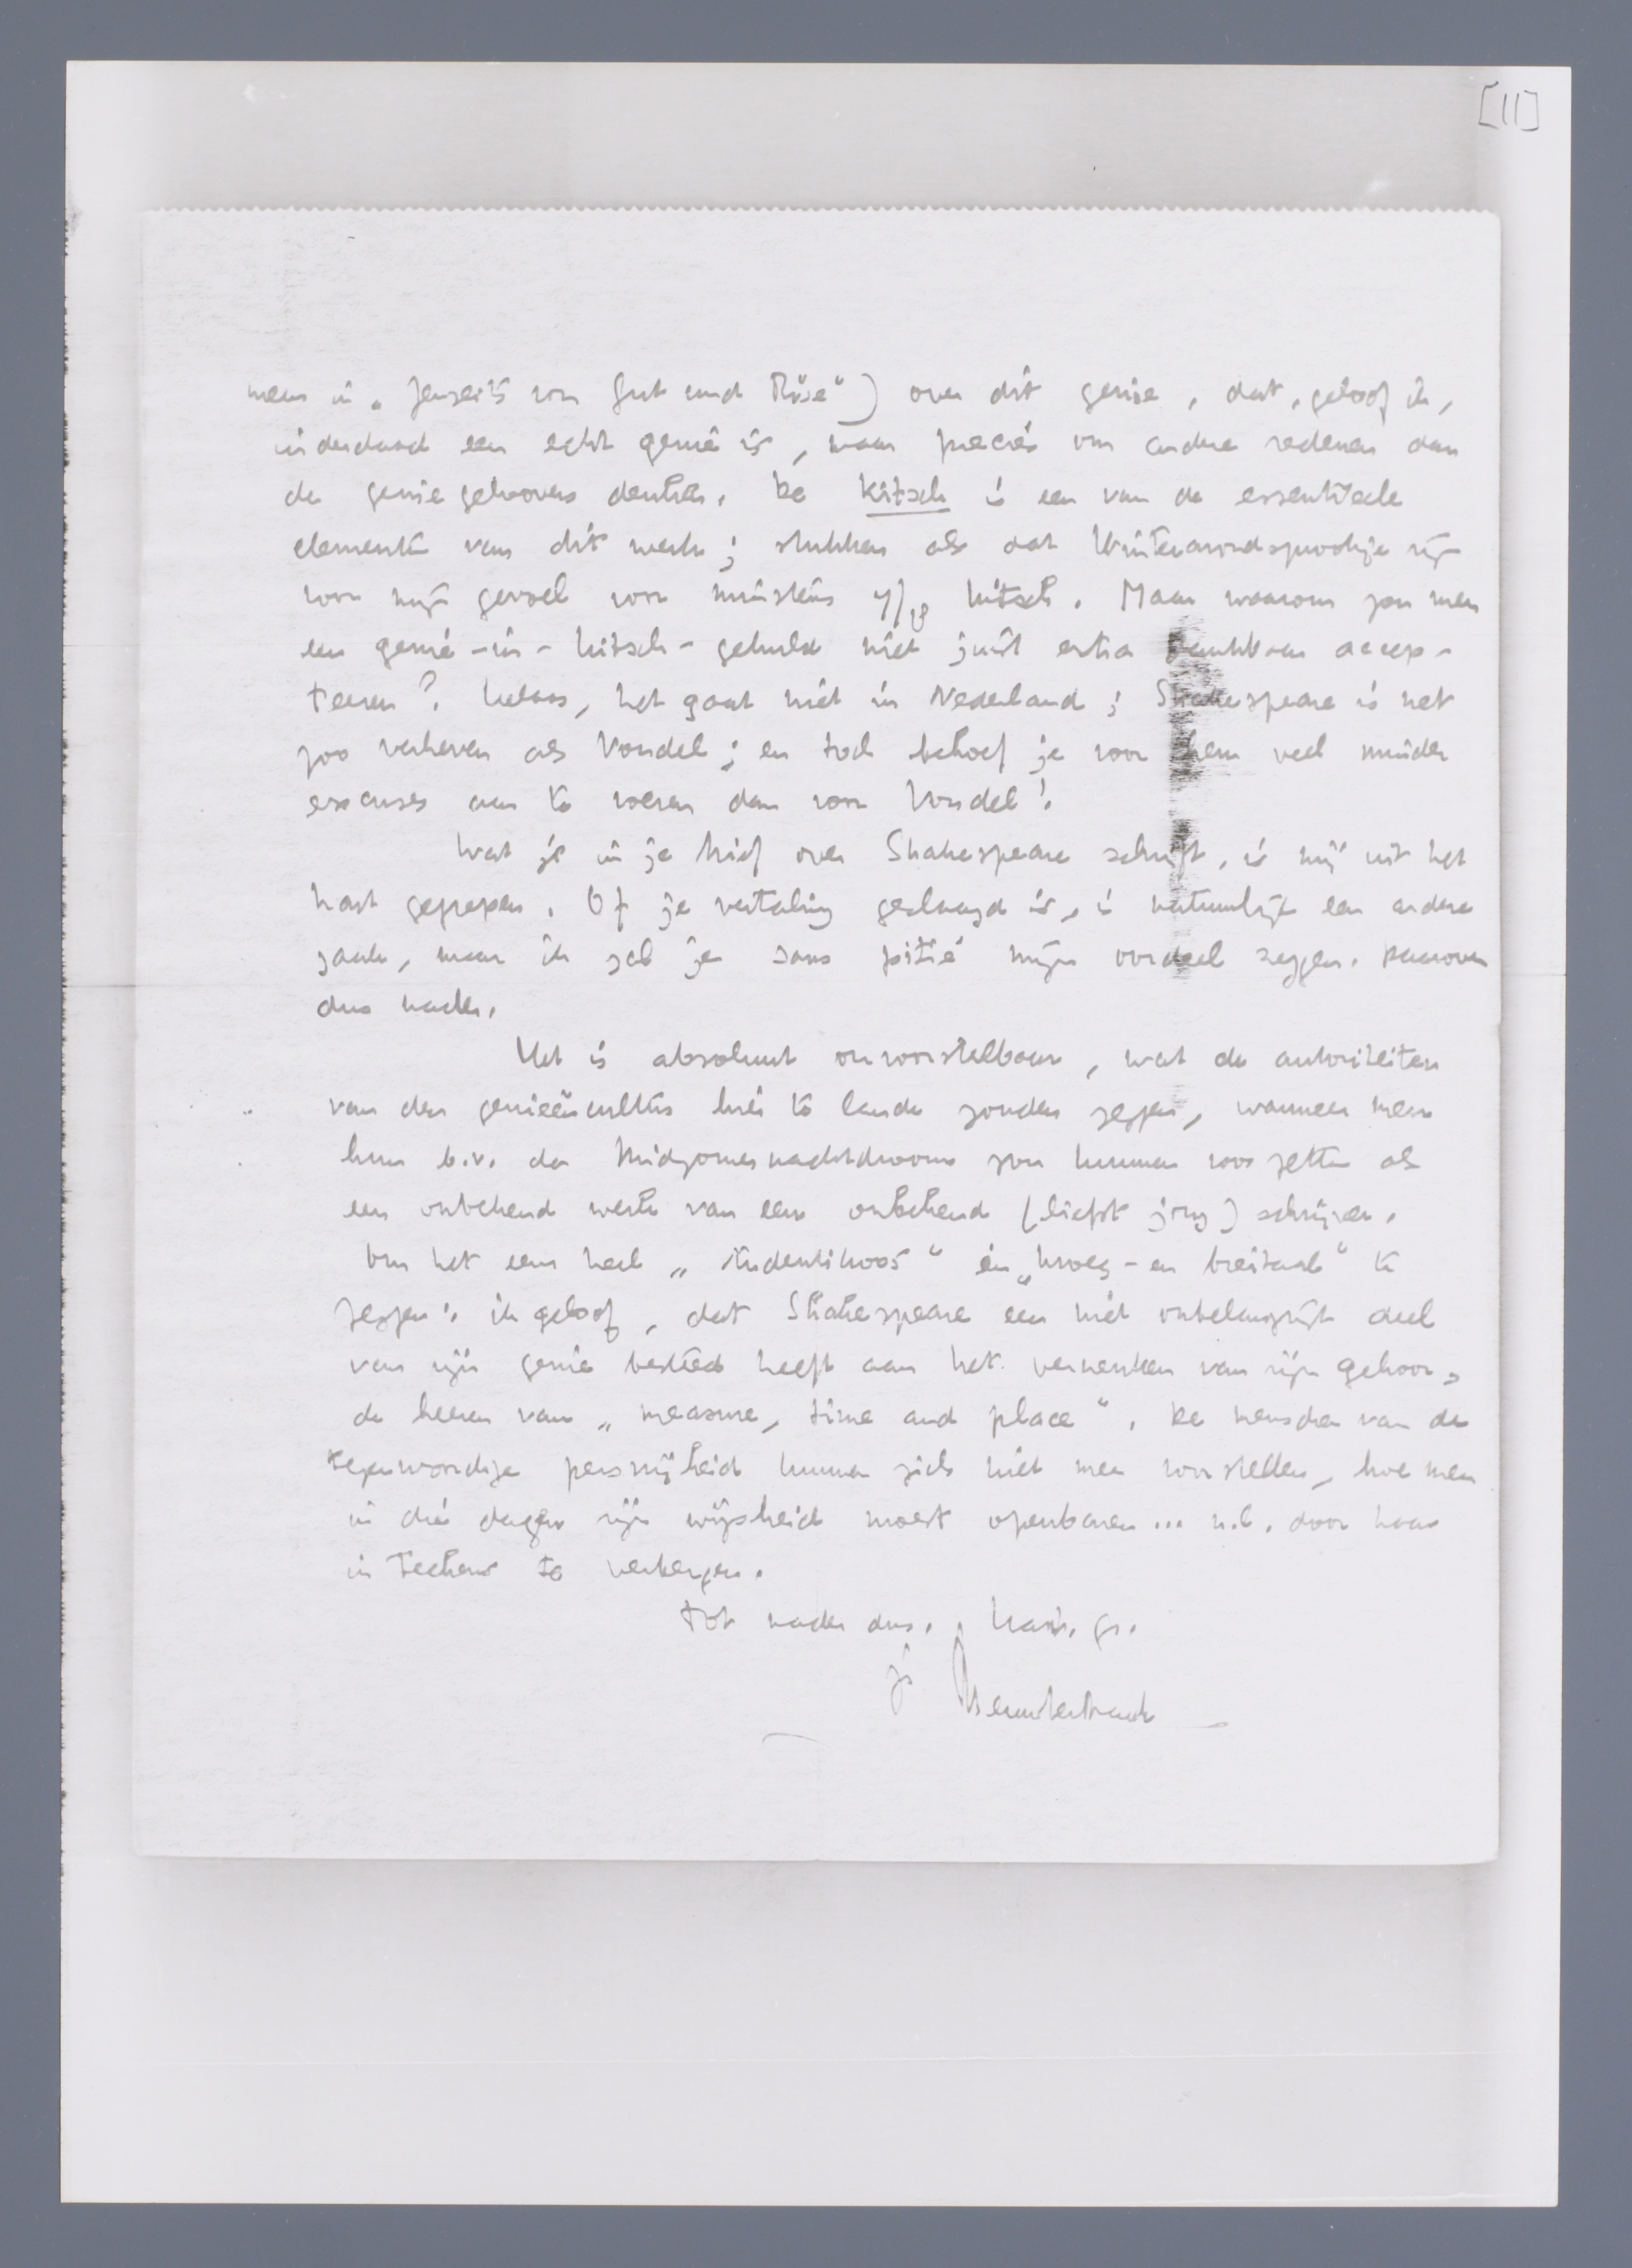 [11]
men in „Jenseits von Gut und Böse") over dit genie, dat, geloof ik,
inderdaad een echt genie is, maar precies om andere redenen dan
de geniegeloovers denken. De Kitsch is een van de essentieele
elementen van dit werk; stukken als dat Winteravondsprookje zijn
voor mijn gevoel voor minstens 4/10 kitsch. Maar waarom zou men
een genie-in-kitsch-gehuld niet juist extra dankbaar accep-
teeren? Helaas, het gaat niet in Nederland; Shakespeare is net
zoo verheven als Vondel; en toch behoef je voor hem veel minder
excuses aan te voeren dan voor Vondel!
Wat je in je brief over Shakespeare schrijft, is mij uit het
hart gegrepen. Of je vertaling geslaagd is, is natuurlijk een andere
zaak, maar ik zal je sans pitié mijn oordeel zeggen. Daarover
dus nader.
Het is absoluut onvoorstelbaar, wat de autoriteiten
van den genieëncultus hier te lande zouden zeggen, wanneer men
hun b.v. de Midzomernachtdroom zou kunnen voorzetten als
een onbekend werk van een onbekend (liefst jong) schrijver.
Om het eens heel „studentikoos" en „kroeg- en breitaal" te
zeggen: ik geloof, dat Shakespeare een niet onbelangrijk deel
van zijn genie besteed heeft aan het verneuken van zijn gehoor,
de heeren van „measure, time and place". De menschen van de
tegenwoordige persvrijheid kunnen zich niet meer voorstellen, hoe men
in die dagen zijn wijsheid moest openbaren... n.l. door haar
in teekens te verbergen.
Tot nader dus. Hart. gr.
je Menno ter Braak